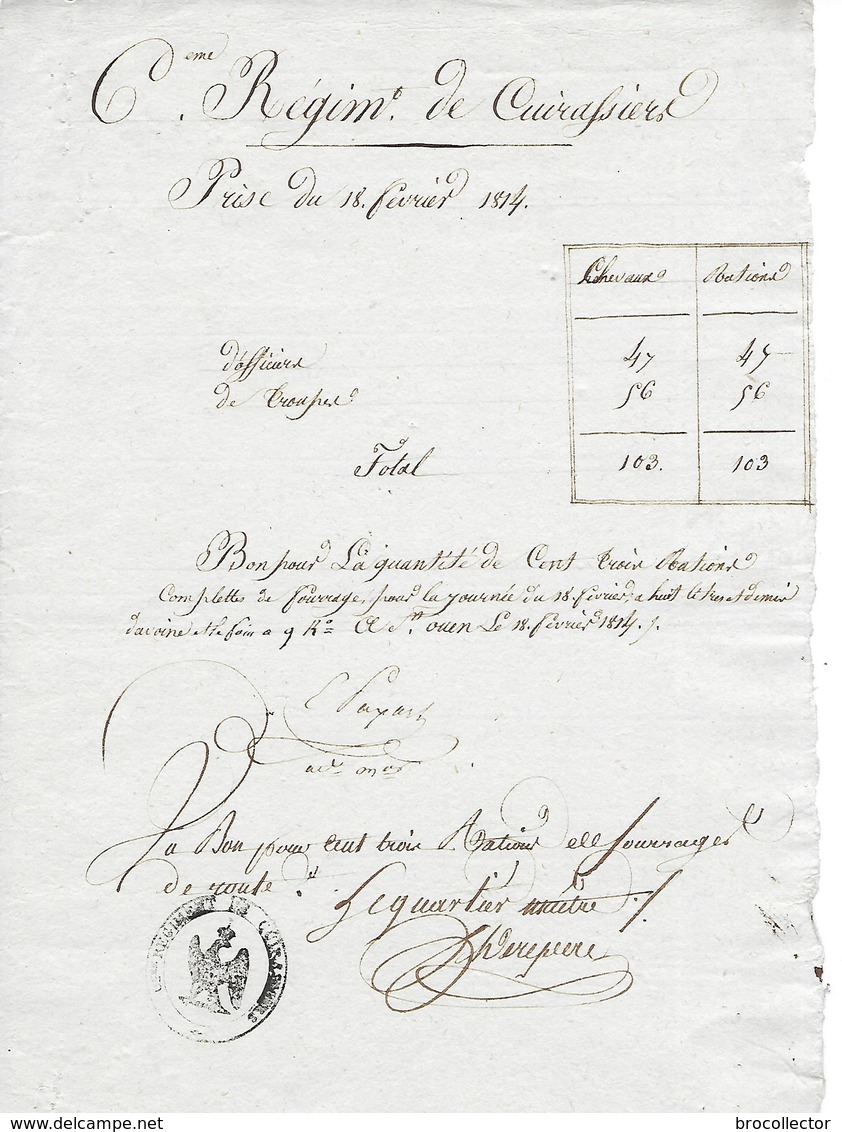 6.eme Régim.t de Cuirassiers
Prise du 18. février 1814.
Chevaux Rations
d'officiers 47 47
de troupes 56 56
Total 103. 103
Bon pour La quantité de Cent trois Rations
Complettes de fourrage, pour la journée du 18. février, a huit litres et demie
d'avoine et le foin a 9 Ko. A St. ouen Le 18. février 1814.
Vu Bon pour Cent trois Rations de fourrages
de route
Le quartier maitre
REGIMENT DE CUIRASSIERS
www.delcampe.net
brocollector